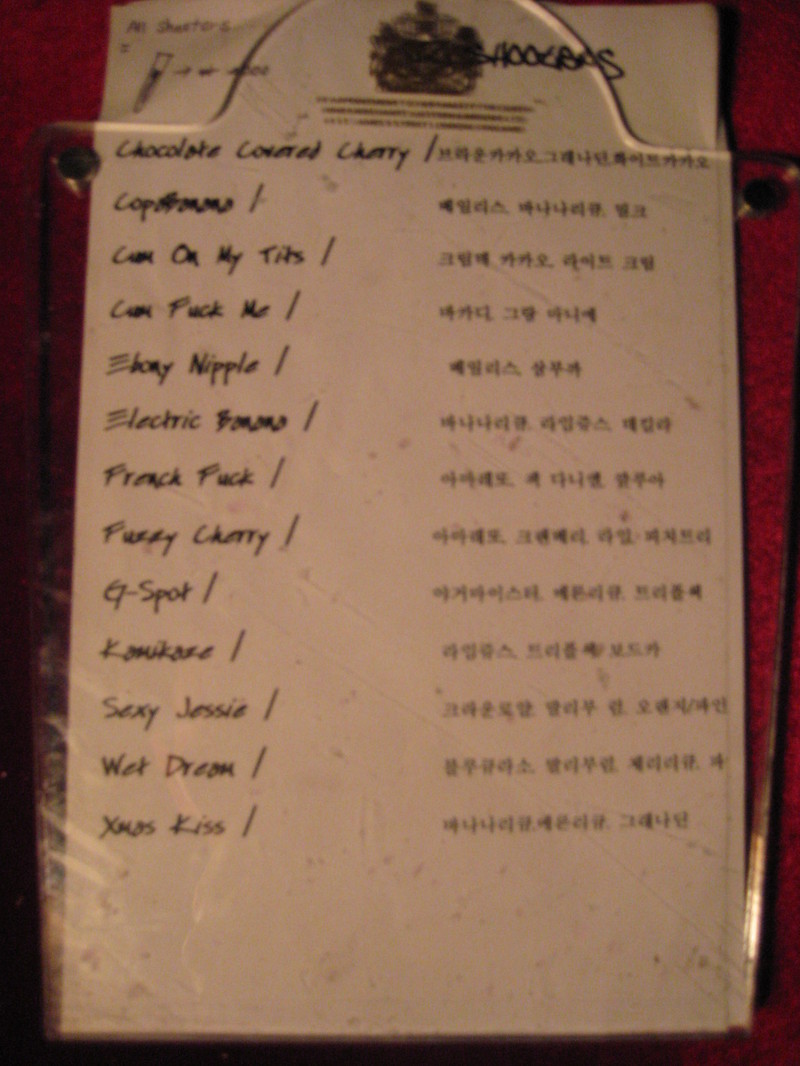 All Shooters
=
SHOOTERS
Chocolate Covered Cherry / 브라운카카오,그레나딘,화이트카카오
CopaBanana / 베일리스, 바나나리큐, 밀크
Cum On My Tits / 크림데 카카오, 라이트 크림
Cum Fuck Me / 바카디, 그랑 마니에
Ebony Nipple / 베일리스, 삼부카
Electric Banana / 바나나리큐, 라임쥬스, 데킬라
French Fuck / 아마레또, 잭 다니엘, 깔루아
Fuzzy Cherry / 아마레또, 크랜베리, 라임, 피치트리
G-Spot / 야거마이스터, 메론리큐, 트리플섹
Kamikaze / 라임쥬스, 트리플섹, 보드카
Sexy Jessie / 크라운로얄, 말리부 럼, 오렌지/파인
Wet Dream / 블루큐라소, 말리부럼, 체리리큐, 파
Xmas Kiss / 바나나리큐,메론리큐, 그레나딘